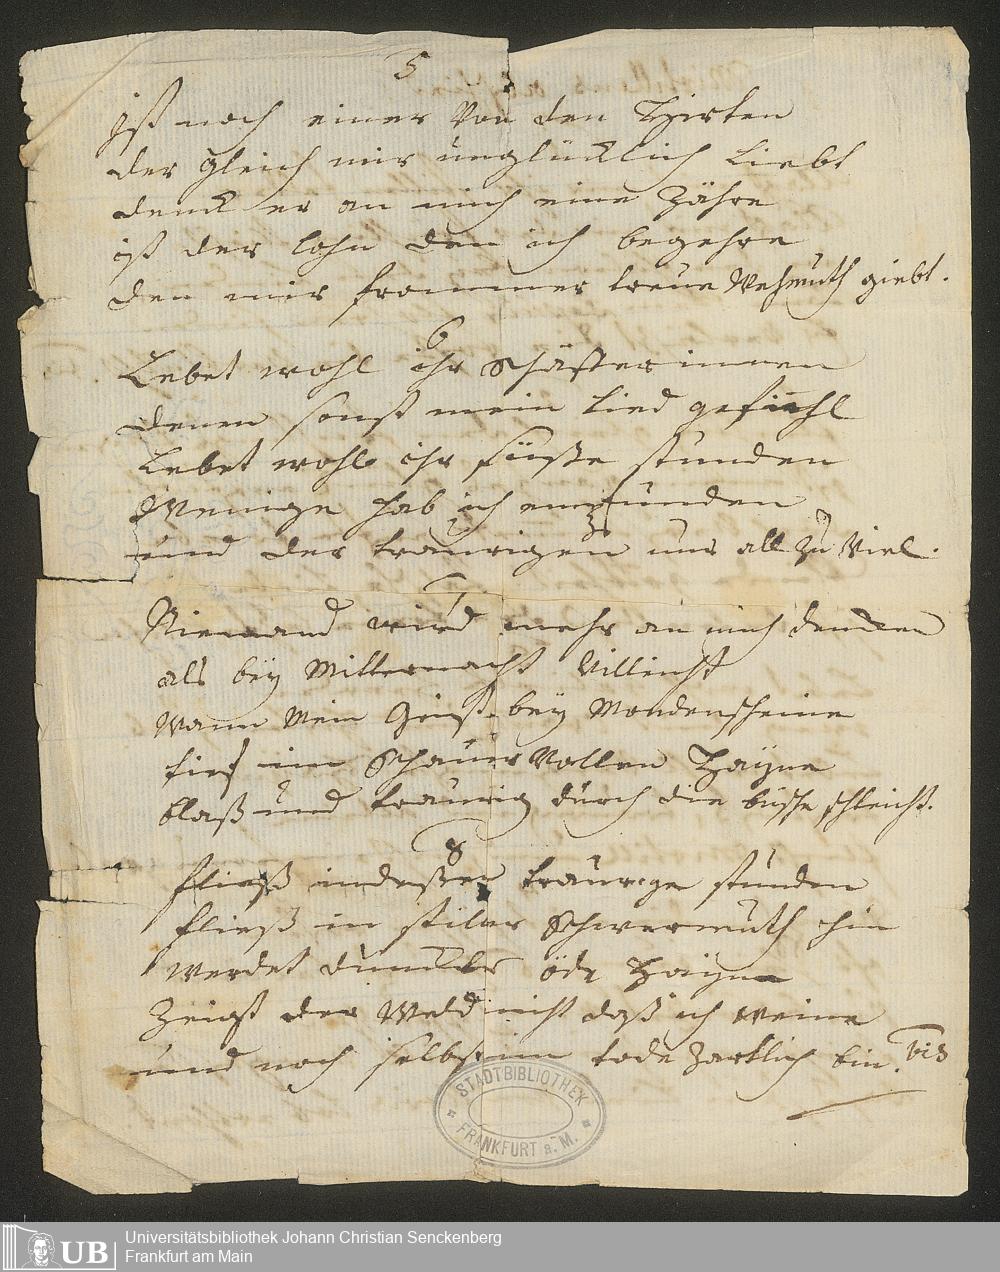 5
Ist noch einer von den Hirten
der gleich mir unglücklich Liebt
denck er an mich eine Zähre
ist der lohn den ich begehre
den mir frommer treue Wehmuth giebt.
6
Lebet wohl ihr Schäfferinnen
denen sonst mein Lied gefiehl
Lebet wohl ihr süsse stunden
Wenige hab ich empfunden
und der traurigen nur all zu Viel.
7
Niemand wird mehr an mich dencken
als bey Mitternacht Villeicht
wann Mein Geist bey Mondenscheine
tief im Schauer Vollen Hayne
blaß und traurig durch die büsche schleicht.
8
fliest indessen traurige stunden
fliest in stiler Schwermuth hin
werdet dunckler öde Hayne
Zeigt der Weld nicht daß ich weine
und noch selbst im tode Zartlich bin. bis
STADTBIBLIOTHEK
FRANKFURT a. M.
UB
Universitätsbibliothek Johann Christian Senckenberg
Frankfurt am Main